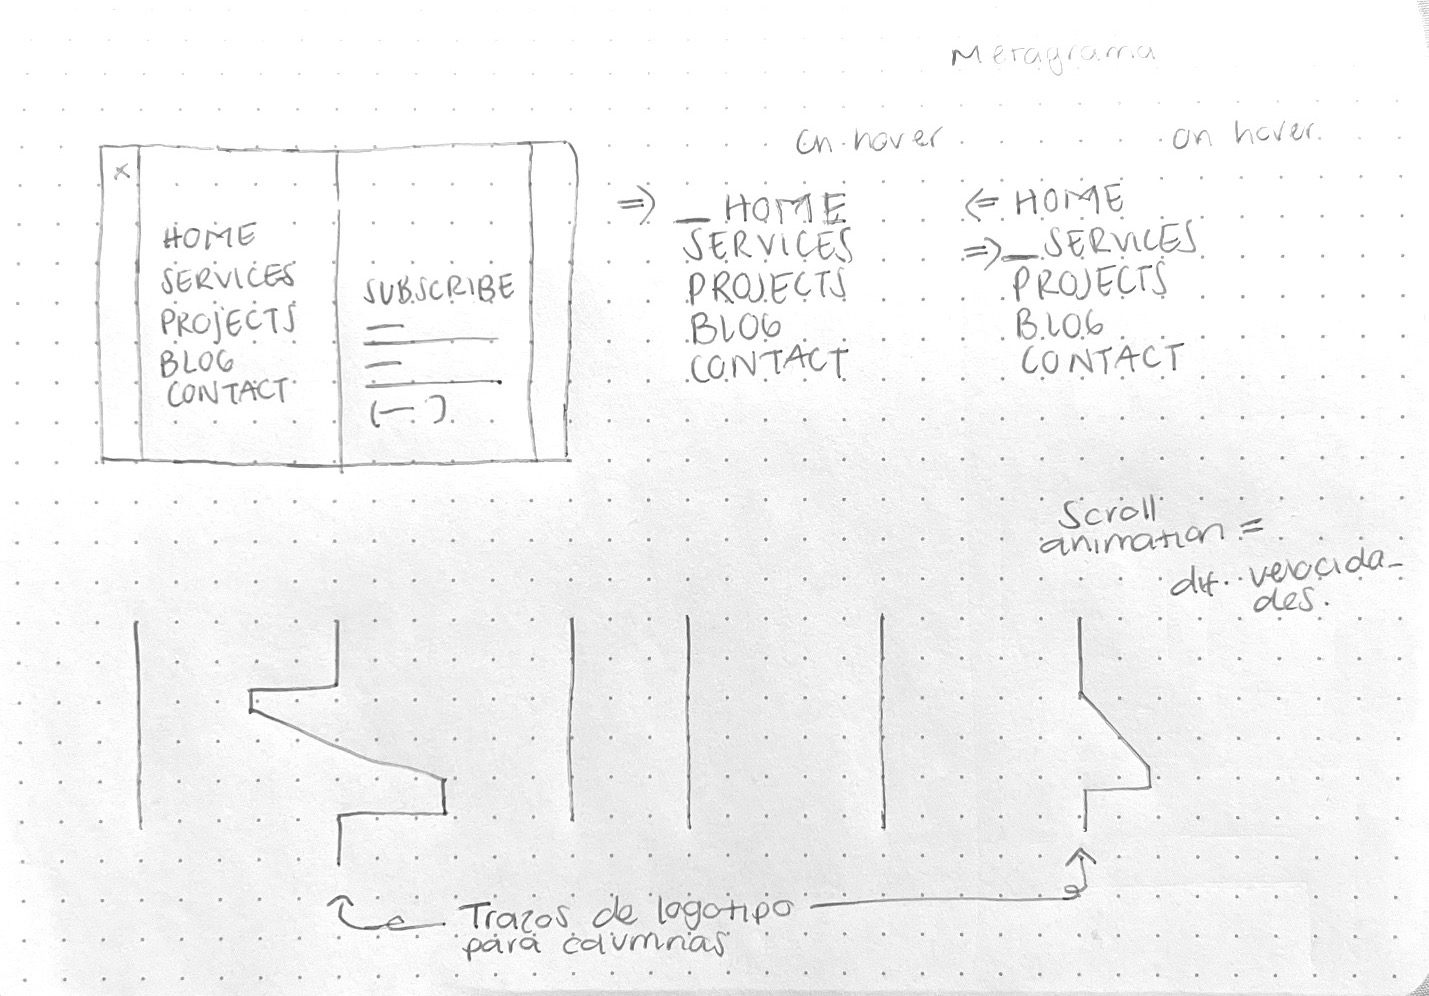 Metagrama
x
HOME
SERVICES
PROJECTS
BLOG
CONTACT
SUBSCRIBE
(— )
on hover
⇒ _ HOME
SERVICES
PROJECTS
BLOG
CONTACT
on hover.
⇐ HOME
⇒ _ SERVICES
PROJECTS
BLOG
CONTACT
Scroll
animation =
dif. velocida-
des.
Trazos de logotipo
para columnas